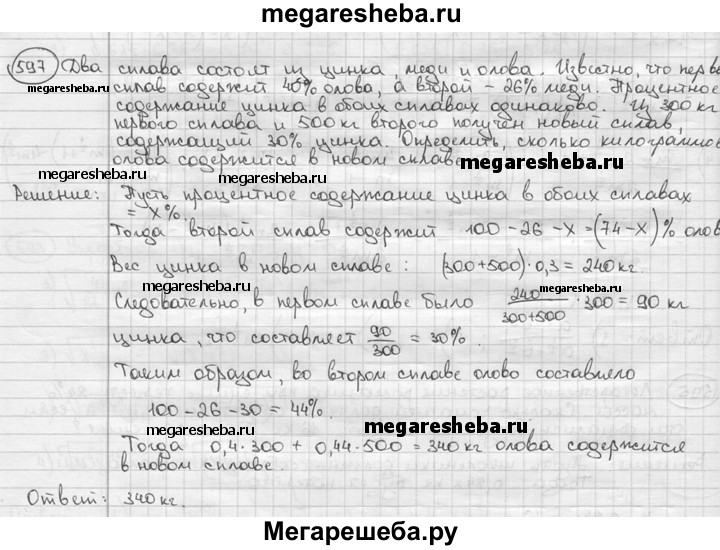 megaresheba.ru
597 Два сплава состоят из цинка, меди и олова. Известно, что перв
megaresheba.ru сплав содержит 40% олова, а второй - 26% меди. Процентное
содержание цинка в обоих сплавах одинаково. Из 300 кг
первого сплава и 500 кг второго получен новый сплав,
содержащий 30% цинка. Определить, сколько килограммов
олова содержится в новом сплаве megaresheba.ru
megaresheba.ru
Решение: Пусть процентное содержание цинка в обоих сплавах
= x%.
megaresheba.ru
Тогда второй сплав содержит 100 - 26 - x = (74 - x)% олов
Вес цинка в новом сплаве: (300+500)·0,3 = 240 кг.
megaresheba.ru megaresheba.ru
Следовательно, в первом сплаве было 240/(300+500) · 300 = 90 кг
цинка, что составляет 90/300 = 30%.
Таким образом, во втором сплаве олово составляло
100 - 26 - 30 = 44%.
megaresheba.ru megaresheba.ru
Тогда 0,4·300 + 0,44·500 = 340 кг олова содержится
в новом сплаве.
megaresheba.ru
Ответ: 340 кг.
Мегарешеба.ру